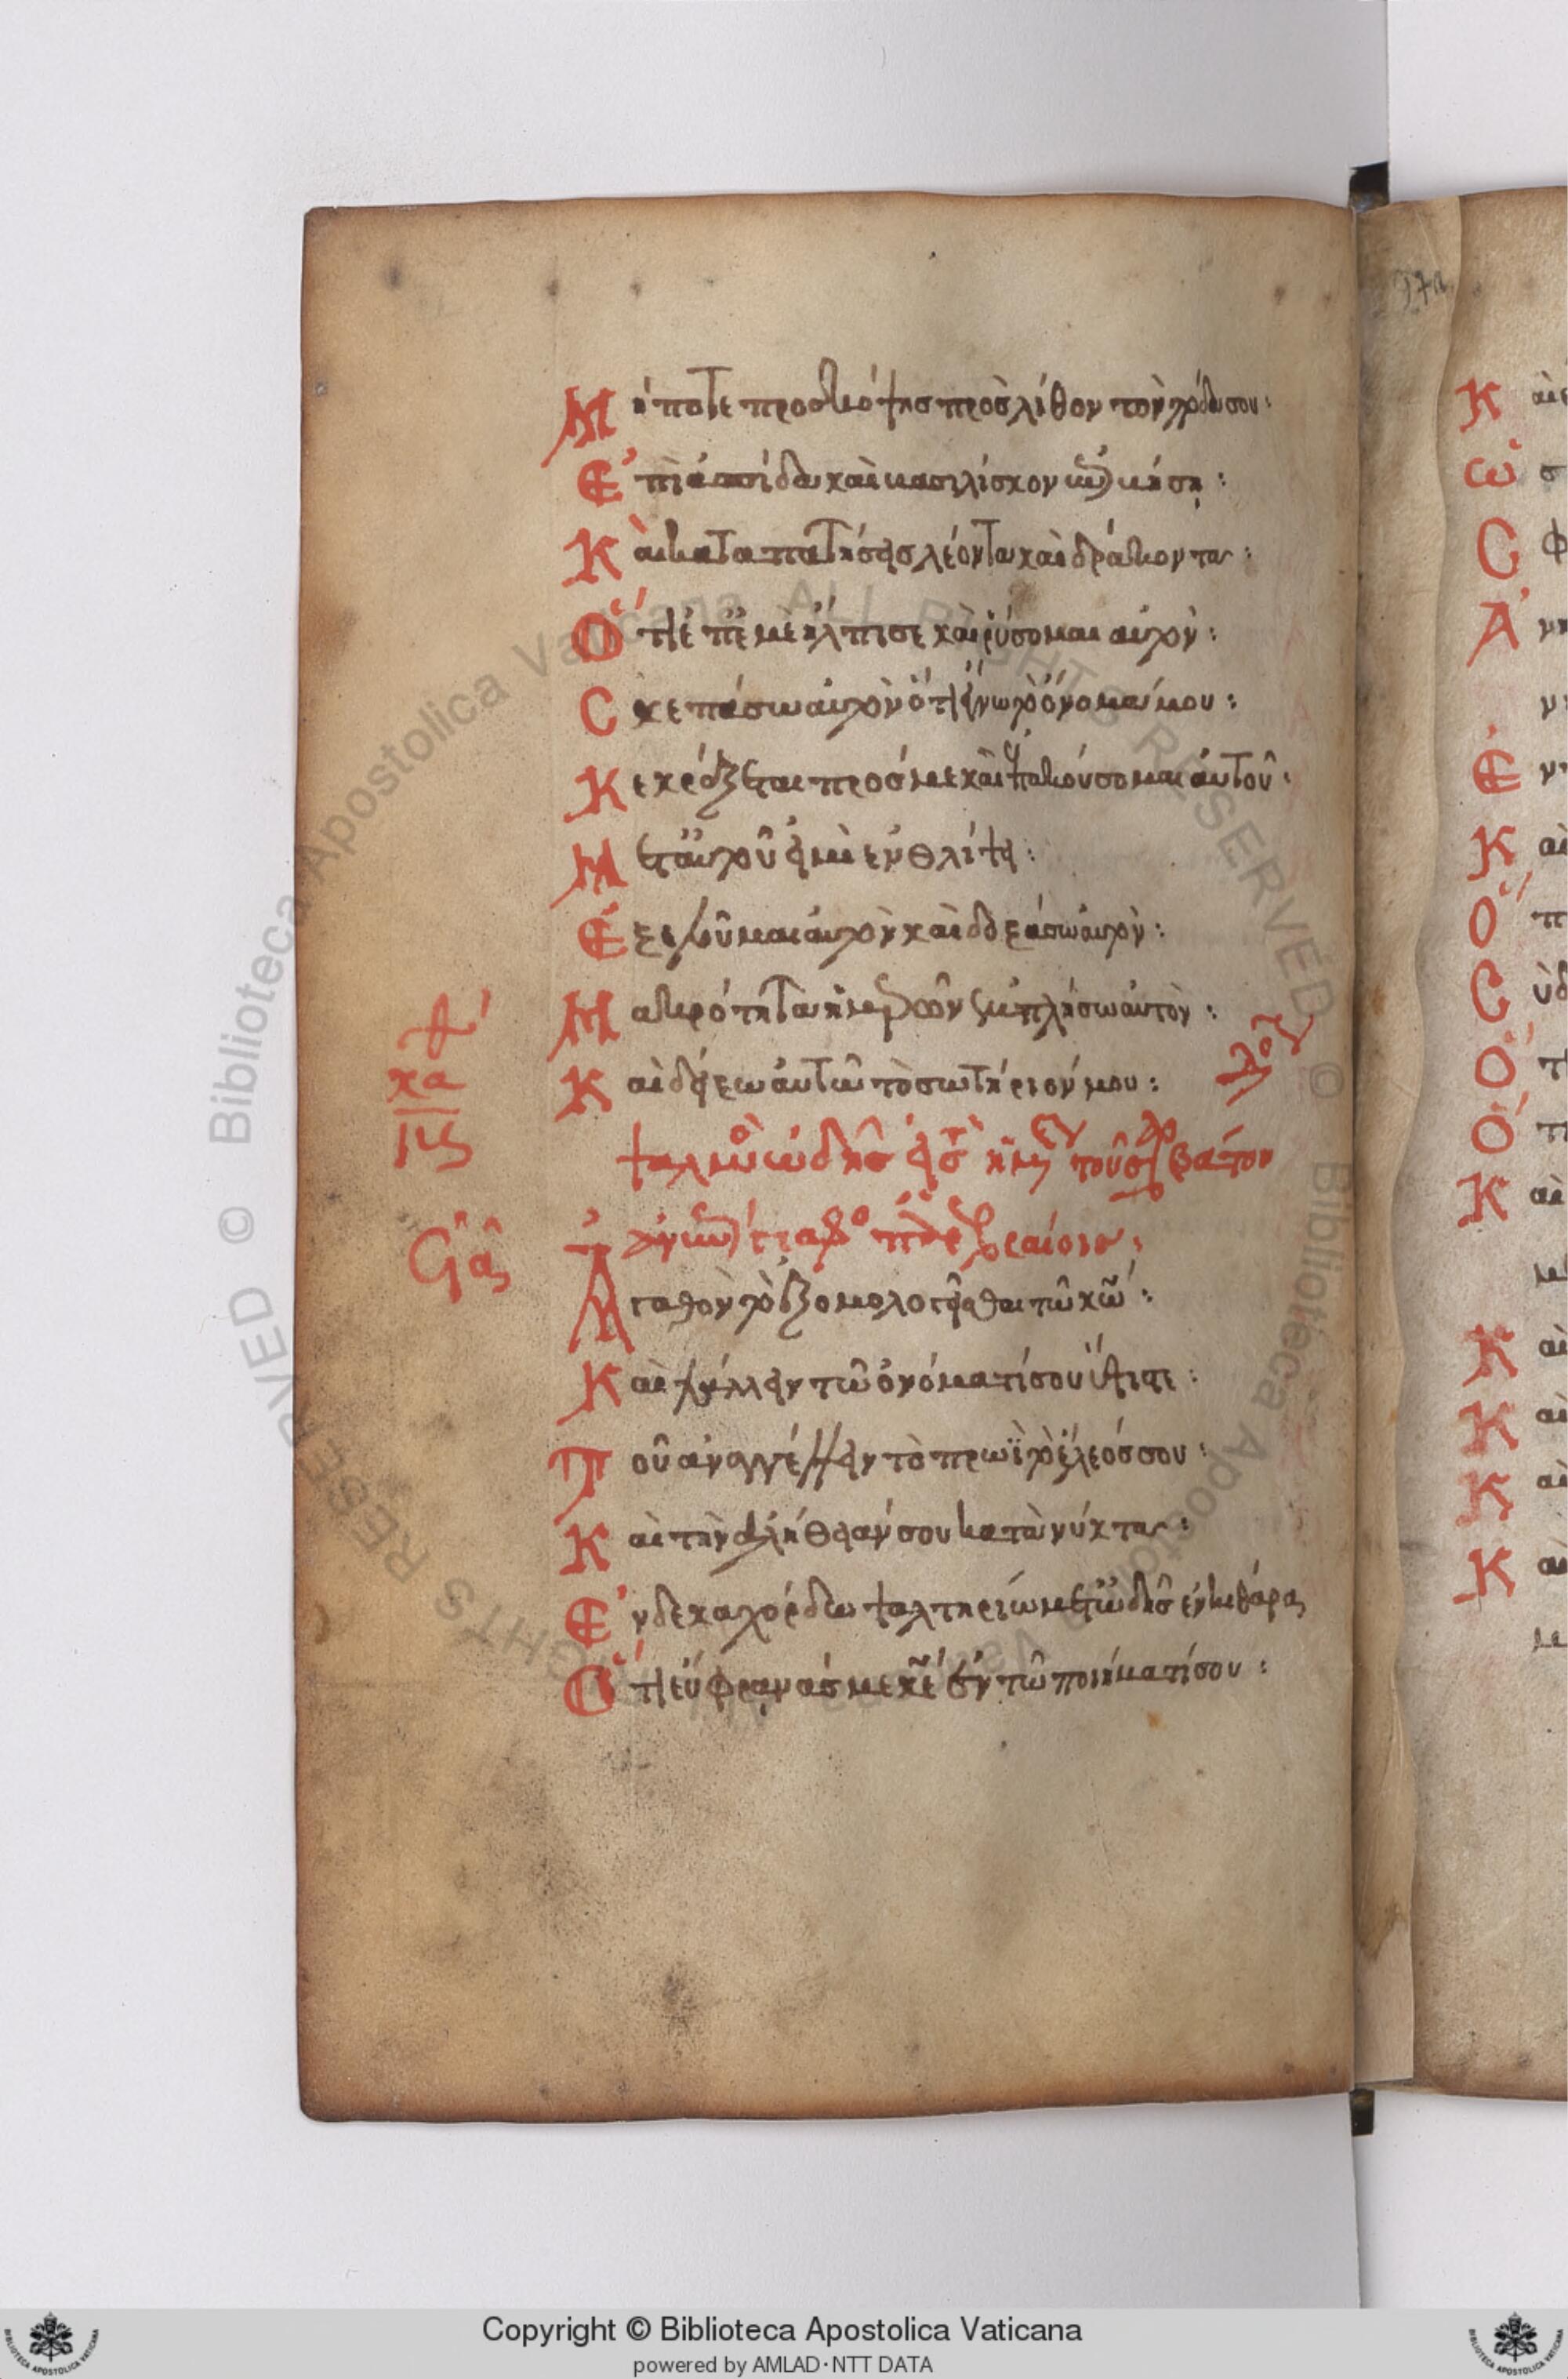 Μήποτε προσκόψης πρὸς λίθον τὸν πόδα σου:
Ἐπὶ ἀσπίδα καὶ βασιλίσκον ἐπιβήση:
Κὰι καταπατήσεις λέοντα καὶ δράκοντα:
Ὅτι ἐπ' ἐμὲ ἤλπισε καὶ ῥύσομαι αὐτὸν:
Σκεπάσω αὐτὸν ὅτι ἔγνω τὸ ὄνομά μου:
Κεκράξεται πρός με καὶ ἐπακούσομαι αὐτοῦ:
Μετ' αὐτοῦ εἰμὶ ἐν θλίψει:
Ἐξελοῦμαι αὐτὸν καὶ δοξάσω αὐτὸν:
Μακρότητα ἡμερῶν ἐμπλήσω αὐτὸν:
Καὶ δείξω αὐτῶ τὸ σωτήριόν μου:
ψαλμὸς ὠδῆς εἰς τὴν ἡμέραν τοῦ σαββάτου
Ἀγαθὸν τὸ ἐξομολογεῖσθαι τῶ κῶ:
Καὶ ψάλλειν τῶ ὀνόματί σου ὕψιστε:
Τοῦ ἀναγγέλλειν τὸ πρωῒ τὸ ἔλεός σου:
Καὶ τὴν ἀλήθειάν σου κατὰ νύκτα:
Ἐν δεκαχόρδω ψαλτηρίω μετ' ὠδῆς ἐν κιθάρα
Ὅτι εὔφρανάς με κε ἐν τῶ ποιήματί σου:
Copyright © Biblioteca Apostolica Vaticana
powered by AMLAD·NTT DATA